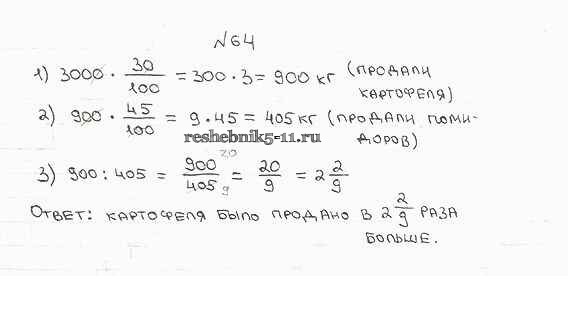 №64
1) 3000 · 30/100 = 300 · 3 = 900 кг (продали
картофеля)
2) 900 · 45/100 = 9 · 45 = 405 кг (продали поми-
доров)
reshebnik5-11.ru
3) 900 : 405 = 900/405 20 9 = 20/9 = 2 2/9
Ответ: картофеля было продано в 2 2/9 раза
больше.